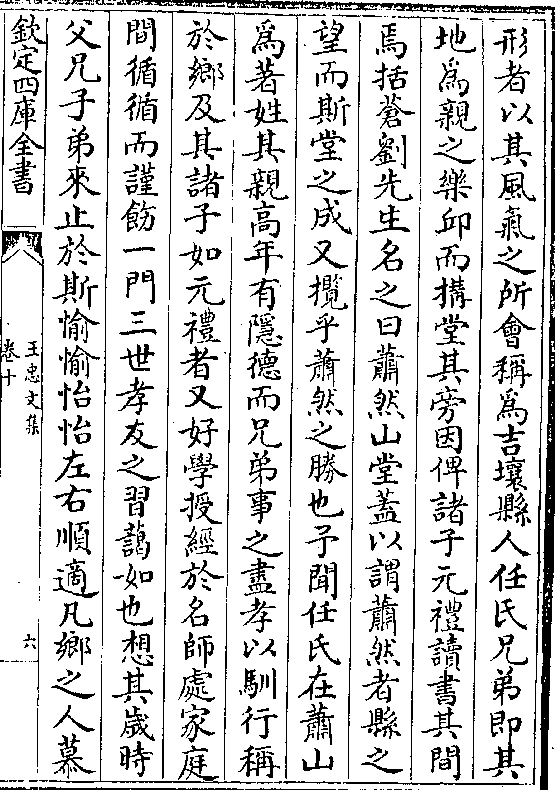 形者以其風氣之所會稱爲吉壤縣人任氏兄弟即其
地爲親之樂邱而搆堂其旁因俾諸子元禮讀書其間
焉括蒼劉先生名之曰蕭然山堂蓋以謂蕭然者縣之
望而斯堂之成又攬乎蕭然之勝也予聞任氏在蕭山
爲著姓其親高年有隱德而兄弟事之盡孝以馴行稱
於鄉及其諸子如元禮者又好學授經於名師處家庭
間循循而謹飭一門三世孝友之習藹如也想其歲時
父兄子弟來止於斯愉愉怡怡左右順適凡鄉之人慕
欽定四庫全書
王忠文集
卷十
六